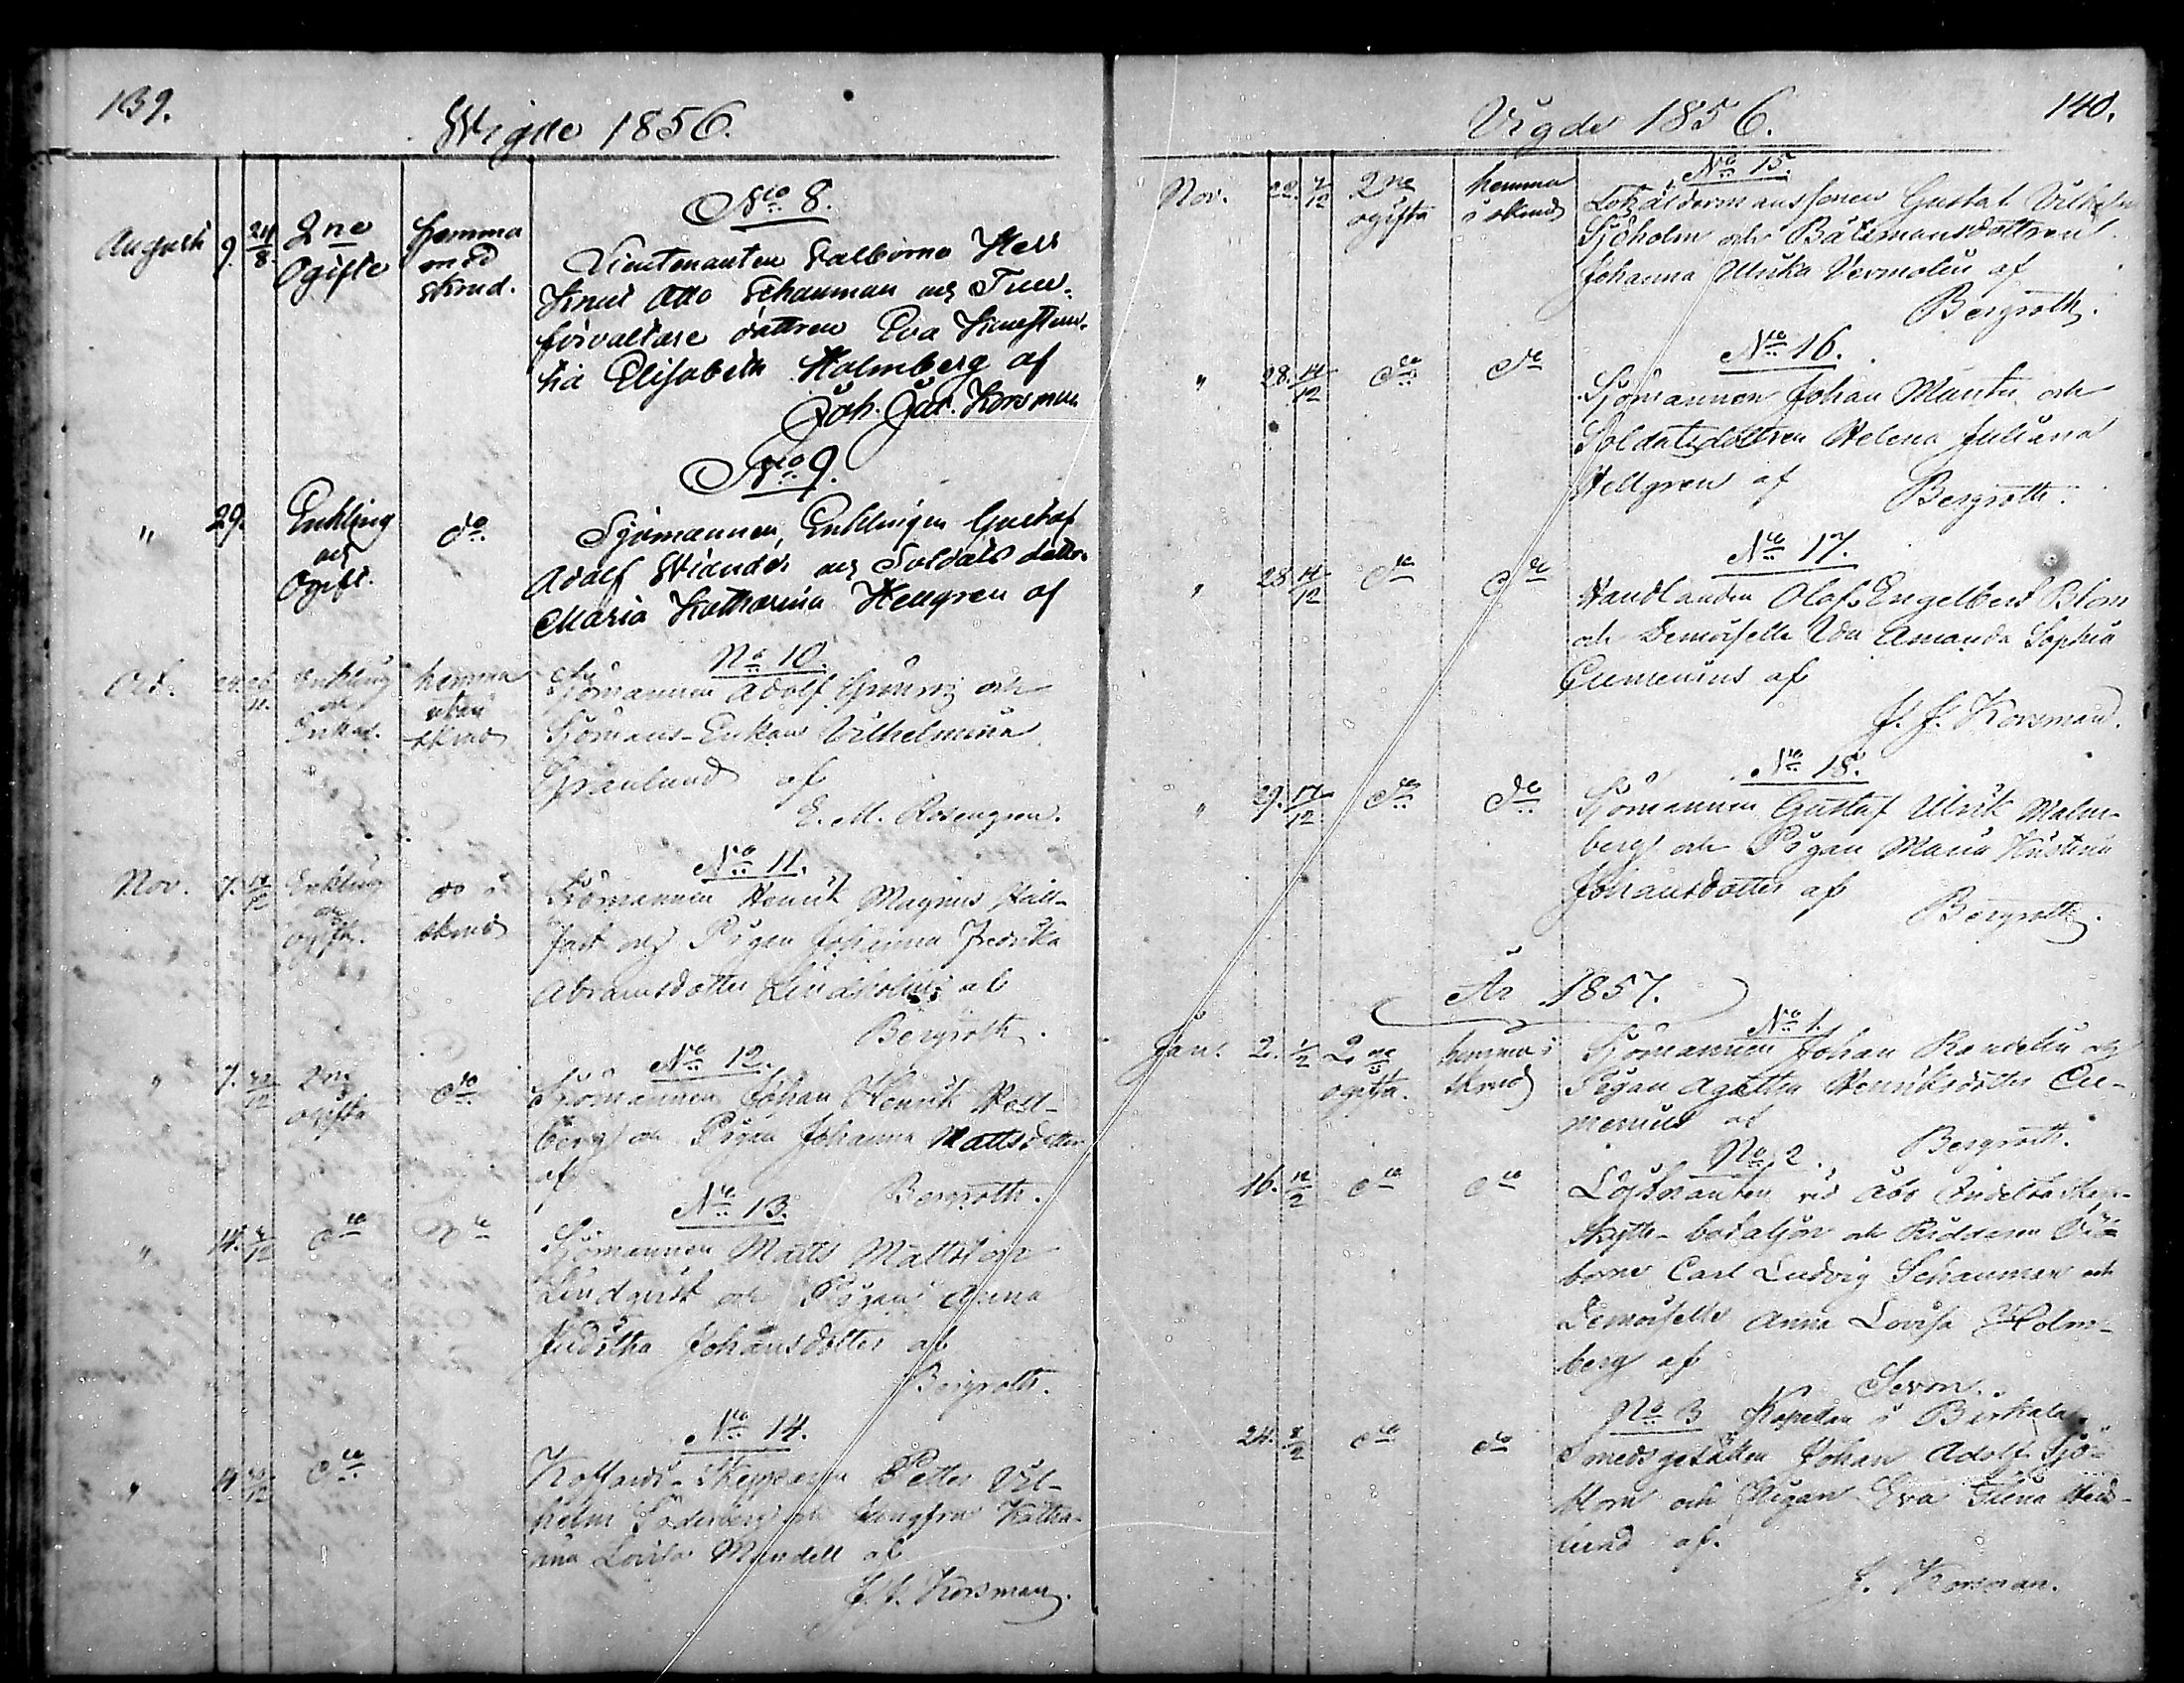 139.
Wigde 1856.
No 8.
Augusti 9. 24/8 2ne Ogifte hemma med skrud.
Lieutenanten Välborne Herr
Knut Otto Schauman och
förvaltare dottren Eva
Elisabeth Holmberg af
Joh. Jac. Korsman
No 9.
" 29. Enkling och Ogift. do
Sjömannen, Enklingen Gustaf
Adolf och Soldats dottr.
Maria Katharina Hellgren af
No 10.
Oct. Enkling och Enka. hemma utan skrud
Sjömannen Adolf och
Sjömans-Enkan Vilhelmina
Granlund af
E. M. Rosengren.
No 11.
Nov. 7. 14/12 Enkling och ogift. do i skrud
Sjömannen Henrik Magnus
och Pigan Johanna Fredrika
Abramsdotter Lindholm af
Bergroth.
No 12.
" 7. 2ne ogifta do
Sjömannen Johan Henrik
berg och Pigan Johanna Mattsdotter
af
Bergroth.
No 13.
" 14. do do
Sjömannen Matts Mattsson
Lindqvist och Pigan Anna
Juditha Johansdotter af
Bergroth.
No 14.
" do
Koffardi-Skepparen Petter Vil-
helm Söderberg och Jungfru Katha-
rina Lovisa Mandell af
J. J. Korsman.
Vigde 1856.
140.
No 15.
Nov. 28. 7/12 2ne ogifta hemma i skrud
Lotsåldermanssonen Gustaf Vilhelm
Sjöholm och Båtsmansdottren
Johanna Ulrika Vermolin af
Bergroth.
No 16.
" 28. 14/12 do do
Sjömannen Johan och
Soldatsdottren Helena Juliana
Hellgren af
Bergroth.
No 17.
" 28. 14/12 do do
Handlanden Olof Engelbert Blom
och Demoiselle Ida Amanda Sophia
Cumenius af
J. J. Korsman.
No 18.
" 29. 17/12 do do
Sjömannen Gustaf Ulrik Malm-
berg och Pigan Maria Kristina
Johansdotter af
Bergroth.
År 1857.
No 1.
Jan. 2. 1/2 2ne ogifta. hemma i skrud
Sjömannen Johan Randelin och
Pigan Agatha Henriksdotter Cu-
menius af
Bergroth.
No 2.
16. do do
Löjtnanten vid Åbo Indelta Skarp-
skytte-bataljon och Riddaren
borne Carl Ludvig Schauman och
Demoiselle Anna Lovisa Holm-
berg af
No 3 Kapellan i Birkala
24. 8/2 do do
Smedsgesällen Johan Adolf Sjö-
blom och Pigan Eva Hed-
lund af.
J. Korsman.